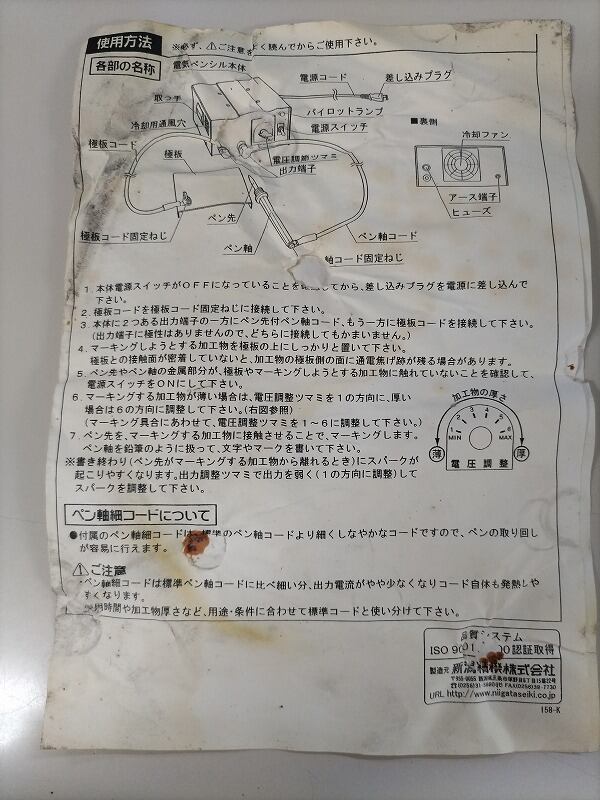 使用方法
※必ず、⚠ご注意をよく読んでからご使用下さい。
各部の名称
電気ペンシル本体
電源コード
差し込みプラグ
取っ手
パイロットランプ
冷却用通風穴
電源スイッチ
■裏側
極板コード
冷却ファン
極板
電圧調節ツマミ
出力端子
アース端子
ヒューズ
ペン先
極板コード固定ねじ
ペン軸
ペン軸コード
軸コード固定ねじ
1．本体電源スイッチがOFFになっていることを してから、差し込みプラグを電源に差し込んで
下さい。
2．極板コードを極板コード固定ねじに接続して下さい。
3．本体に2つある出力端子の一方にペン先付ペン軸コード、もう一方に極板コードを接続して下さい。
(出力端子に極性はありませんので、どちらに接続してもかまいません。)
4．マーキングしようとする加工物を極板の上にしっかりと置いて下さい。
極板との接触面が密着していないと、加工物の極板側の面に通電焦げ跡が残る場合があります。
5．ペン先やペン軸の金属部分が、極板やマーキングしようとする加工物に触れていないことを確認して、
電源スイッチをONにして下さい。
6．マーキングする加工物が薄い場合は、電圧調整ツマミを1の方向に、厚い
場合は6の方向に調整して下さい。(右図参照)
(マーキング具合にあわせて、電圧調整ツマミを1～6に調整して下さい。)
加工物の厚さ
1 2 3 4 5 6
MIN MAX
薄 厚
電圧調整
7．ペン先を、マーキングする加工物に接触させることで、マーキングします。
ペン軸を鉛筆のように扱って、文字やマークを書いて下さい。
※書き終わり(ペン先がマーキングする加工物から離れるとき)にスパークが
起こりやすくなります。出力調整ツマミで出力を弱く(1の方向に調整)して
スパークを調整して下さい。
ペン軸細コードについて
●付属のペン軸細コードは、標準のペン軸コードより細くしなやかなコードですので、ペンの取り回し
が容易に行えます。
⚠ご注意
・ペン軸細コードは標準ペン軸コードに比べ細い分、出力電流がやや少なくなりコード自体も発熱しや
すくなります。
使用時間や加工物厚さなど、用途・条件に合わせて標準コードと使い分けて下さい。
品質システム
ISO 9001 認証取得
製造元 新潟精機株式会社
URL http://www.niigataseiki.co.jp
158-K